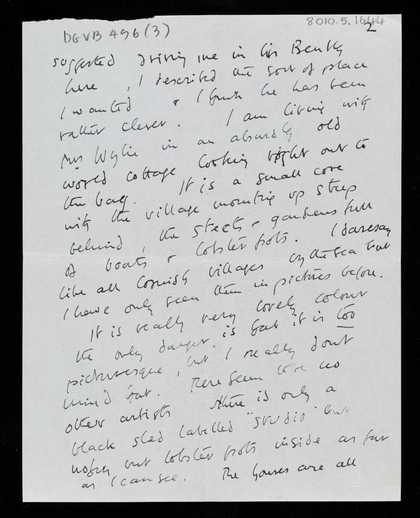 DGVB 496 (3)
8010.5.1644
2
suggested driving me in his Bentley
here, I described the sort of place
I wanted & I think he has been
rather clever. I am living with
Mrs Wylie in an absurdly old
world cottage looking right out to
the bay. It is a small cove
with the village mounting up steep
behind, the streets & gardens full
of boats & lobster pots. I daresay
like all Cornish villages by the sea but
I have only seen them in pictures before.
It is really very lovely colour
the only danger is that it is too
picturesque, but I really don't
mind that. There seem to be no
other artists there is only a
black shed labelled "studio" but
nothing but lobster pots inside as far
as I can see. The houses are all